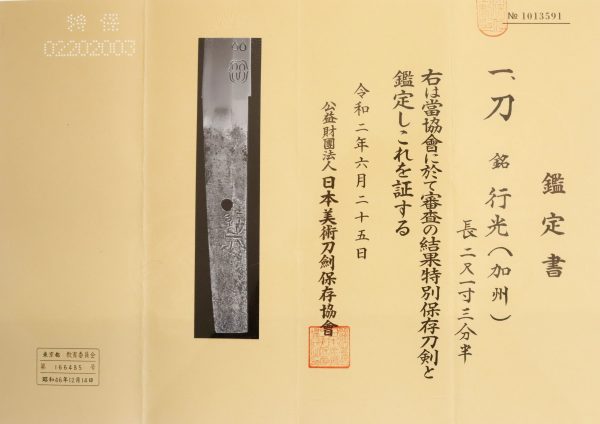 № 1013591
鑑定書
一、刀 銘 行光(加州)
長二尺一寸三分半
右は當協會に於て審査の結果特別保存刀剣と
鑑定しこれを証する
令和二年六月二十五日
公益財團法人日本美術刀劍保存協會
特保
02202003
東京都 教育委員会
第 166485 号
昭和46年12月14日